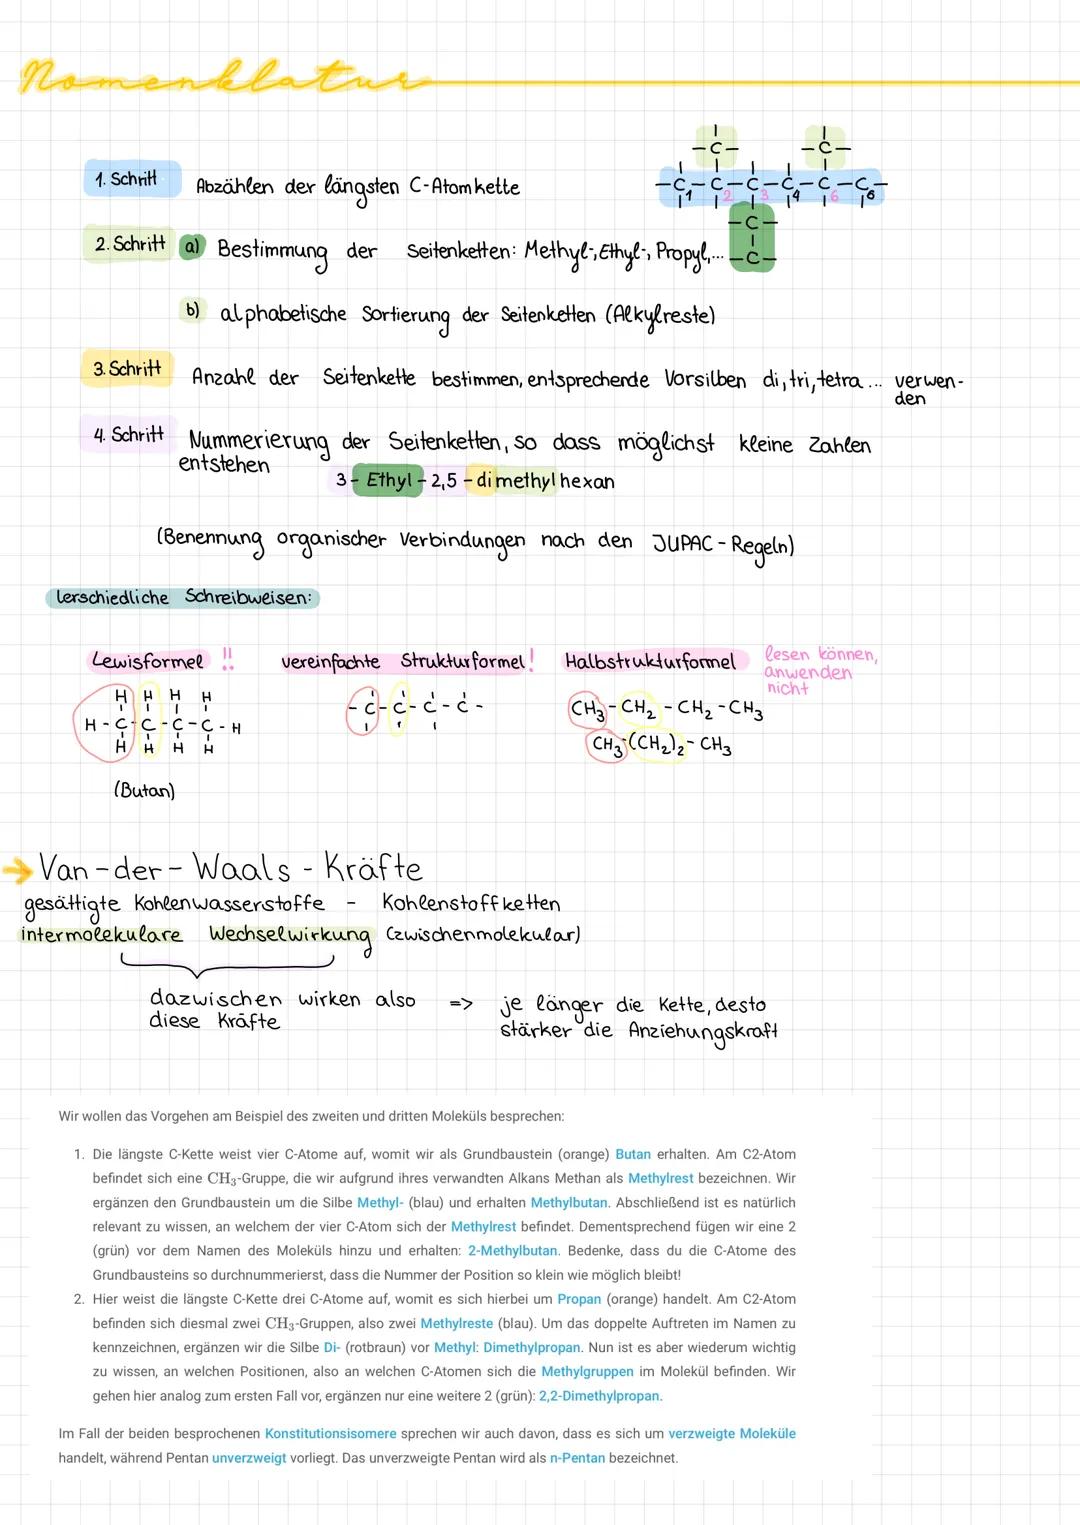 Nomenklatur
1. Schritt Abzählen der längsten C-Atomkette
-C-
-C-
-C-C-C-C-C-C-
1 2 3 4 6 6
-C-
-C-
2. Schritt a) Bestimmung der Seitenketten: Methyl-, Ethyl-, Propyl,...
b) alphabetische Sortierung der Seitenketten (Alkylreste)
3. Schritt Anzahl der Seitenkette bestimmen, entsprechende Vorsilben di, tri, tetra ... verwen-
den
4. Schritt Nummerierung der Seitenketten, so dass möglichst kleine Zahlen
entstehen
3 - Ethyl - 2,5 - dimethylhexan
(Benennung organischer Verbindungen nach den JUPAC - Regeln)
Verschiedliche Schreibweisen:
Lewisformel !! vereinfachte Strukturformel! Halbstrukturformel lesen können,
anwenden
nicht
H H H H
H - C - C - C - C - H
H H H H
- C - C - C - C -
CH3 - CH2 - CH2 - CH3
CH3 - (CH2)2 - CH3
(Butan)
→ Van-der-Waals-Kräfte
gesättigte Kohlenwasserstoffe - Kohlenstoffketten
intermolekulare Wechselwirkung (zwischenmolekular)
dazwischen wirken also => je länger die Kette, desto
diese Kräfte stärker die Anziehungskraft
Wir wollen das Vorgehen am Beispiel des zweiten und dritten Moleküls besprechen:
1. Die längste C-Kette weist vier C-Atome auf, womit wir als Grundbaustein (orange) Butan erhalten. Am C2-Atom
befindet sich eine CH3-Gruppe, die wir aufgrund ihres verwandten Alkans Methan als Methylrest bezeichnen. Wir
ergänzen den Grundbaustein um die Silbe Methyl- (blau) und erhalten Methylbutan. Abschließend ist es natürlich
relevant zu wissen, an welchem der vier C-Atom sich der Methylrest befindet. Dementsprechend fügen wir eine 2
(grün) vor dem Namen des Moleküls hinzu und erhalten: 2-Methylbutan. Bedenke, dass du die C-Atome des
Grundbausteins so durchnummerierst, dass die Nummer der Position so klein wie möglich bleibt!
2. Hier weist die längste C-Kette drei C-Atome auf, womit es sich hierbei um Propan (orange) handelt. Am C2-Atom
befinden sich diesmal zwei CH3-Gruppen, also zwei Methylreste (blau). Um das doppelte Auftreten im Namen zu
kennzeichnen, ergänzen wir die Silbe Di- (rotbraun) vor Methyl: Dimethylpropan. Nun ist es aber wiederum wichtig
zu wissen, an welchen Positionen, also an welchen C-Atomen sich die Methylgruppen im Molekül befinden. Wir
gehen hier analog zum ersten Fall vor, ergänzen nur eine weitere 2 (grün): 2,2-Dimethylpropan.
Im Fall der beiden besprochenen Konstitutionsisomere sprechen wir auch davon, dass es sich um verzweigte Moleküle
handelt, während Pentan unverzweigt vorliegt. Das unverzweigte Pentan wird als n-Pentan bezeichnet.